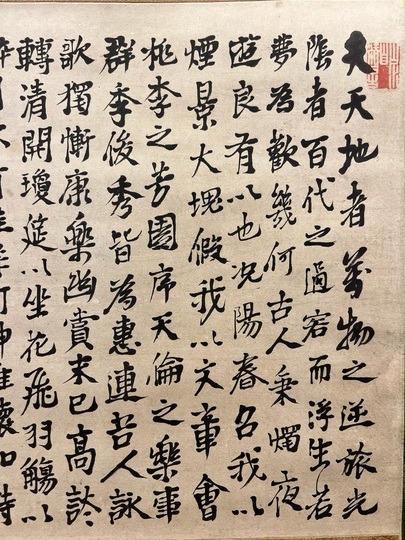 夫天地者萬物之逆旅光
陰者百代之過客而浮生若
夢為歡幾何古人秉燭夜
遊良有以也況陽春召我以
煙景大塊假我以文章會
桃李之芳園序天倫之樂事
群季俊秀皆為惠連吾人詠
歌獨慚康樂幽賞未已高談
轉清開瓊筵以坐花飛羽觴以